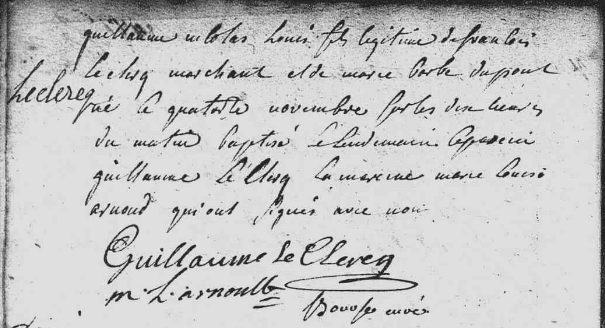 guillaume nicolas Louis fils legitime de francois
Leclerq marchant et de marie barbe dupont
Leclercq
né le quatorze novembre sur les dix heures
du matin baptisé le lendemain le parein
guillaume Le Clerq la mareine marie Louise
arnoud qui ont signés avec nous
Guillaume Le Clercq
m. L. arnoult
curé